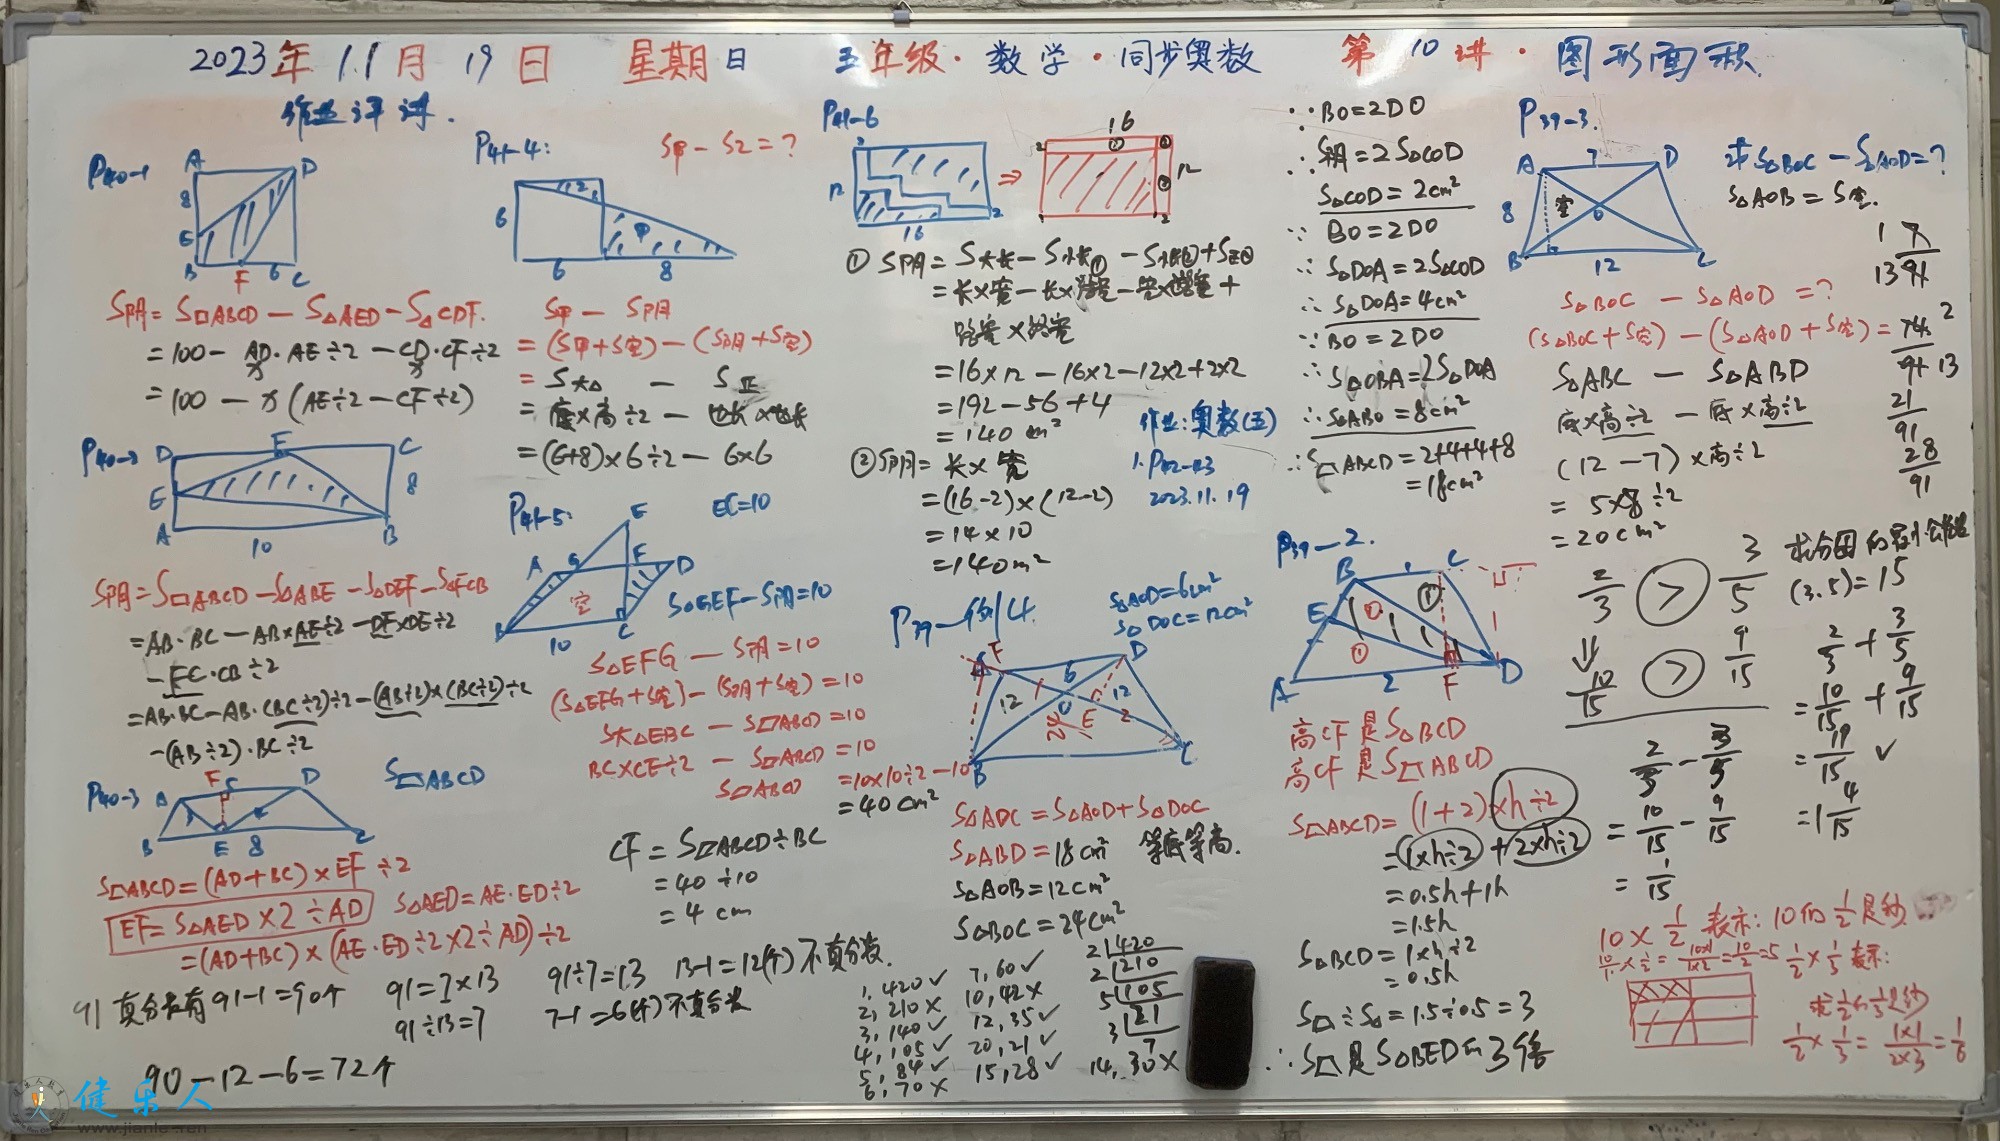 2023年11月19日 星期日 五年级·数学·同步奥数 第10讲·图形面积
作业评讲.
P40-1
A
D
8
E
B
F
6
C
S阴=S□ABCD-S△AED-S△CDF.
=100-AD·AE÷2-CD·CF÷2
=100-
(AE÷2-CF÷2)
P40-2
D
E
C
E
8
A
10
B
S阴=S□ABCD-S△ABE-S△DEF-S△FCB
=AB·BC-AB×AE÷2-DF×DE÷2
-FC·CB÷2
=AB·BC-AB·(BC÷2)÷2-(AB÷2)×(BC÷2)÷2
-(AB÷2)·BC÷2
P40-3
A
F
D
B
E
8
C
S ABCD
S ABCD=(AD+BC)×EF÷2
EF=S△AED×2÷AD
S△AED=AE·ED÷2
=(AD+BC)×(AE·ED÷2×2÷AD)÷2
91真分数有91-1=90个
91=7×13
91÷7=13
13-1=12(个)不真分数.
91÷13=7
7-1=6(个)不真分数
90-12-6=72个
P41-4:
S甲-S乙=?
6
乙
甲
6
8
S甲-S阴
=(S甲+S空)-(S阴+S空)
=S大△-S正
=底×高÷2-边长×边长
=(6+8)×6÷2-6×6
P41-5:
EC=10
E
A
G
F
D
空
B
10
C
S△GEF-S阴=10
S△EFG-S阴=10
(S△EFG+S空)-(S阴+S空)=10
S大△EBC-S ABCD=10
BC×CE÷2-S ABCD=10
S ABCD=10×10÷2-10
=40cm²
CF=S ABCD÷BC
=40÷10
=4cm
P41-6
2
12
16
2
⇒
16
2
12
2
①S阴=S大长-S小长①-S小长②+S正③
=长×宽-长×路宽-宽×路宽+
路宽×路宽
=16×12-16×2-12×2+2×2
=192-56+4
=140m²
②S阴=长×宽
=(16-2)×(12-2)
=14×10
=140m²
作业:奥数(五)
1.P42-43
2023.11.19
P39-例4.
S△AOD=6cm²
S△DOC=12cm²
A
F
6
D
12
O
12
E
2
B
C
S△ADC=S△AOD+S△DOC
S△ABD=18cm² 等底等高.
S△AOB=12cm²
S△BOC=24cm²
1,420✓
2,210×
3,140✓
4,105✓
5,84✓
6,70×
7,60✓
10,42×
12,35✓
20,21✓
15,28✓
14,30×
2|420
2|210
5|105
3|21
7
∵BO=2DO
∴S阴=2S△COD
S△COD=2cm²
∵BO=2DO
∴S△DOA=2S△COD
∴S△DOA=4cm²
∵BO=2DO
∴S△OBA=2S△DOA
∴S△ABO=8cm²
∴S ABCD=2+4+4+8
=18cm²
P39-2.
B
1
C
E
①
①
①
A
2
F
D
高CF是S△BCD
高CF是S ABCD
S ABCD=(1+2)×h÷2
=1×h÷2+2×h÷2
=0.5h+1h
=1.5h
S△BCD=1×h÷2
=0.5h
S ÷S△=1.5÷0.5=3
∴S 是S△BED的3倍
P39-3.
A
7
D
8
空
O
B
12
C
求S△BOC-S△AOD=?
S△AOB=S空.
S△BOC-S△AOD=?
(S△BOC+S空)-(S△AOD+S空)=
S△ABC-S△ABD
底×高÷2-底×高÷2
(12-7)×高÷2
=5×8÷2
=20cm²
1
7
13
91
14
2
91
13
21
91
28
91
2/3 > 3/5
求分母的最小公倍数
(3.5)=15
⇓
10/15 > 9/15
2/3+3/5
=10/15+9/15
=19/15 ✓
=1 4/15
2/3-3/5
=10/15-9/15
=1/15
10×1/2表示:10的1/2是多少
10/1×1/2=10×1/1×2=10/2=5
1/2×1/3表示:
求1/2的1/3是多少
1/2×1/3=1×1/2×3=1/6
健乐人